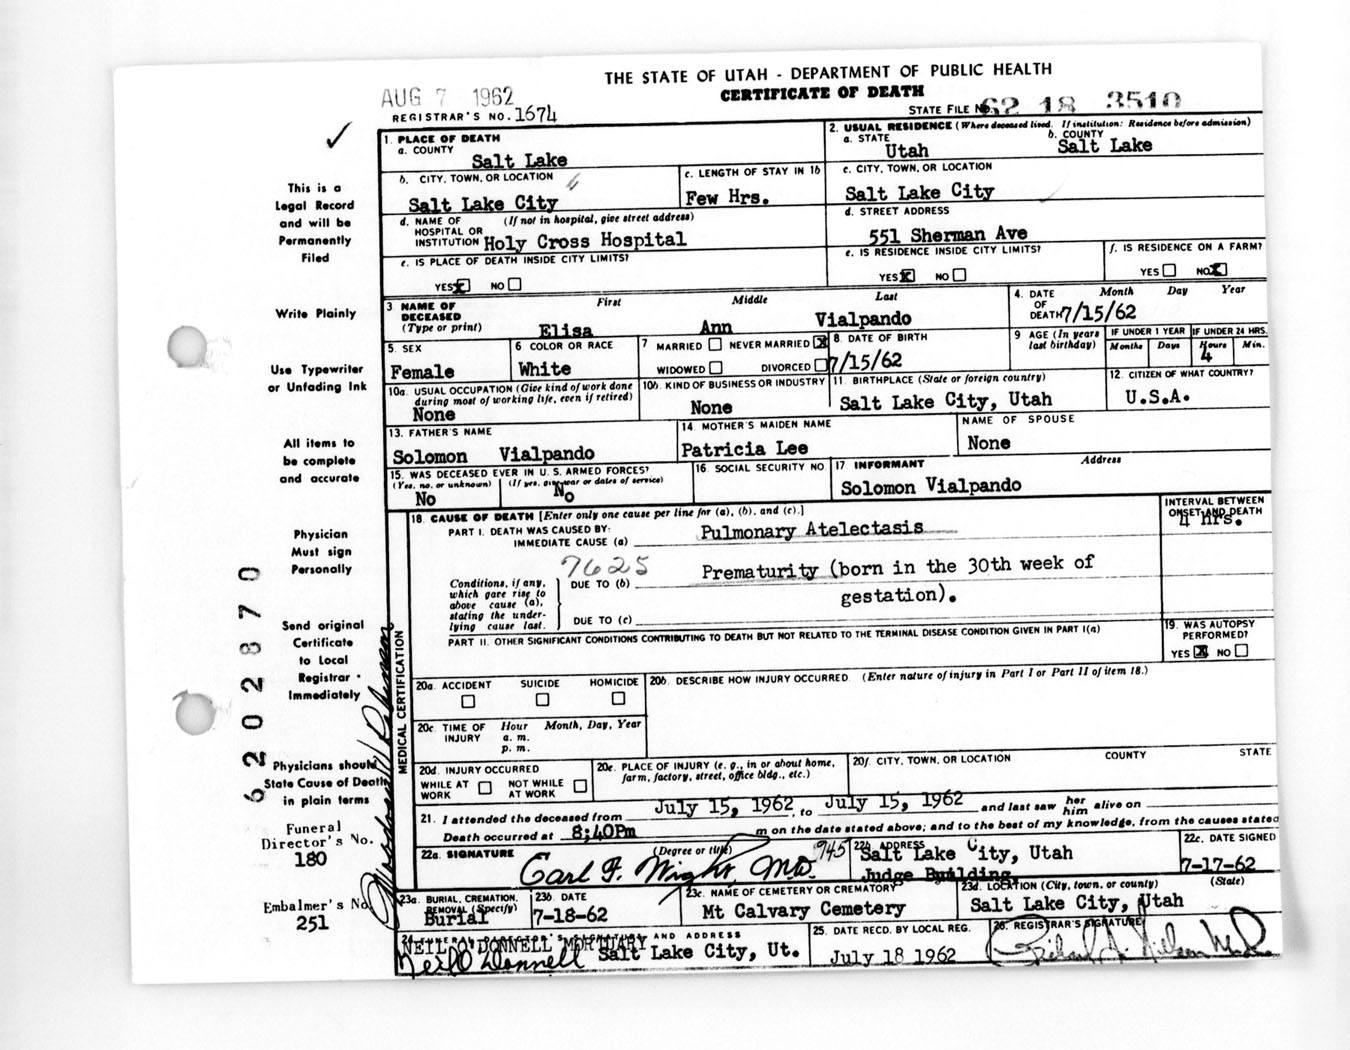 THE STATE OF UTAH - DEPARTMENT OF PUBLIC HEALTH
CERTIFICATE OF DEATH
AUG 7 1962
REGISTRAR'S NO. 1674
STATE FILE NO. 62 18 3510
This is a
Legal Record
and will be
Permanently
Filed
Write Plainly
Use Typewriter
or Unfading Ink
All items to
be complete
and accurate
Physician
Must sign
Personally
Send original
Certificate
to Local
Registrar
Immediately
Physicians should
State Cause of Death
in plain terms
Funeral
Director's No.
180
Embalmer's No.
251
6202870
1. PLACE OF DEATH
a. COUNTY
Salt Lake
2. USUAL RESIDENCE (Where deceased lived. If institution: Residence before admission)
a. STATE
Utah
b. COUNTY
Salt Lake
b. CITY, TOWN, OR LOCATION
Salt Lake City
c. LENGTH OF STAY IN 1b
Few Hrs.
c. CITY, TOWN, OR LOCATION
Salt Lake City
d. NAME OF (If not in hospital, give street address)
HOSPITAL OR
INSTITUTION Holy Cross Hospital
d. STREET ADDRESS
551 Sherman Ave
e. IS PLACE OF DEATH INSIDE CITY LIMITS?
YES x NO
e. IS RESIDENCE INSIDE CITY LIMITS?
YES x NO
f. IS RESIDENCE ON A FARM?
YES NO x
3 NAME OF
DECEASED
(Type or print)
First Middle Last
Elisa Ann Vialpando
4. DATE
OF
DEATH
Month Day Year
7/15/62
5. SEX
Female
6 COLOR OR RACE
White
7 MARRIED NEVER MARRIED x
WIDOWED DIVORCED
8. DATE OF BIRTH
7/15/62
9 AGE (In years
last birthday)
IF UNDER 1 YEAR IF UNDER 24 HRS.
Months Days Hours Min.
4
10a. USUAL OCCUPATION (Give kind of work done
during most of working life, even if retired)
None
10b. KIND OF BUSINESS OR INDUSTRY
None
11. BIRTHPLACE (State or foreign country)
Salt Lake City, Utah
12. CITIZEN OF WHAT COUNTRY?
U.S.A.
13. FATHER'S NAME
Solomon Vialpando
14. MOTHER'S MAIDEN NAME
Patricia Lee
NAME OF SPOUSE
None
15. WAS DECEASED EVER IN U. S. ARMED FORCES?
(Yes, no. or unknown) (If yes, give war or dates of service)
No No
16. SOCIAL SECURITY NO.
17 INFORMANT Address
Solomon Vialpando
MEDICAL CERTIFICATION
18. CAUSE OF DEATH [Enter only one cause per line for (a), (b), and (c).]
INTERVAL BETWEEN
ONSET AND DEATH
PART I. DEATH WAS CAUSED BY:
IMMEDIATE CAUSE (a) Pulmonary Atelectasis 4 hrs.
7625
Conditions, if any,
which gave rise to
above cause (a),
stating the under-
lying cause last.
DUE TO (b) Prematurity (born in the 30th week of
gestation).
DUE TO (c)
PART II. OTHER SIGNIFICANT CONDITIONS CONTRIBUTING TO DEATH BUT NOT RELATED TO THE TERMINAL DISEASE CONDITION GIVEN IN PART I(a)
19. WAS AUTOPSY
PERFORMED?
YES x NO
20a. ACCIDENT SUICIDE HOMICIDE
20b. DESCRIBE HOW INJURY OCCURRED. (Enter nature of injury in Part I or Part II of item 18.)
20c. TIME OF
INJURY
Hour Month, Day, Year
a. m.
p. m.
20d. INJURY OCCURRED
WHILE AT
WORK
NOT WHILE
AT WORK
20e. PLACE OF INJURY (e. g., in or about home,
farm, factory, street, office bldg., etc.)
20f. CITY, TOWN, OR LOCATION COUNTY STATE
21. I attended the deceased from July 15, 1962, to July 15, 1962 and last saw her him alive on
Death occurred at 8;40Pm m on the date stated above; and to the best of my knowledge, from the causes stated
22a. SIGNATURE (Degree or title)
Carl F. Wright, M.D. 945
22b. ADDRESS
Salt Lake City, Utah
Judge Building
22c. DATE SIGNED
7-17-62
23a. BURIAL, CREMATION,
REMOVAL (Specify)
Burial
23b. DATE
7-18-62
23c. NAME OF CEMETERY OR CREMATORY
Mt Calvary Cemetery
23d. LOCATION (City, town, or county) (State)
Salt Lake City, Utah
24. AND ADDRESS
NEIL O'DONNELL MORTUARY
Neil O'Donnell Salt Lake City, Ut.
25. DATE RECD. BY LOCAL REG.
July 18 1962
26. REGISTRAR'S SIGNATURE